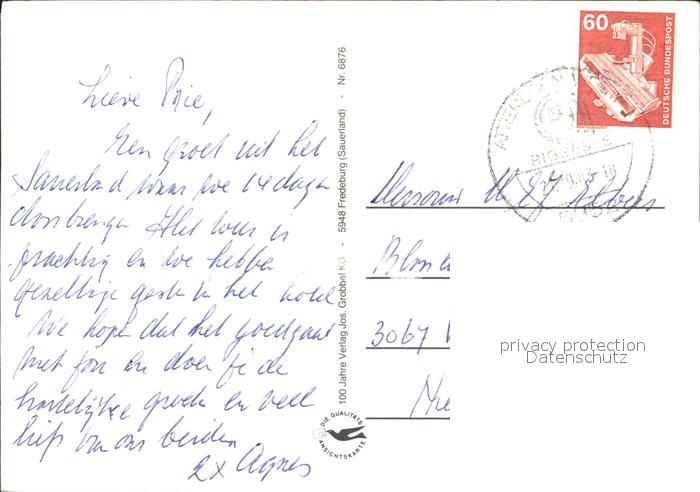 Lieve Rie,
Een groet uit het
Sauerland waar we 14 dagen
doorbrengen Het weer is
prachtig en we hebben
gezellige gasten in het hotel
We hopen dat het goed gaat
met jou en doen je de
hartelijke groeten en veel
liefs van ons beiden
2x Agnes
100 Jahre Verlag Jos. Grobbel KG - 5948 Fredeburg (Sauerland) - Nr. 6876
DIE QUALITÄTS
ANSICHTSKARTE
60
DEUTSCHE BUNDESPOST
ATTENDORN
BIGGESEE
Mevrouw
3067
privacy protection
Datenschutz